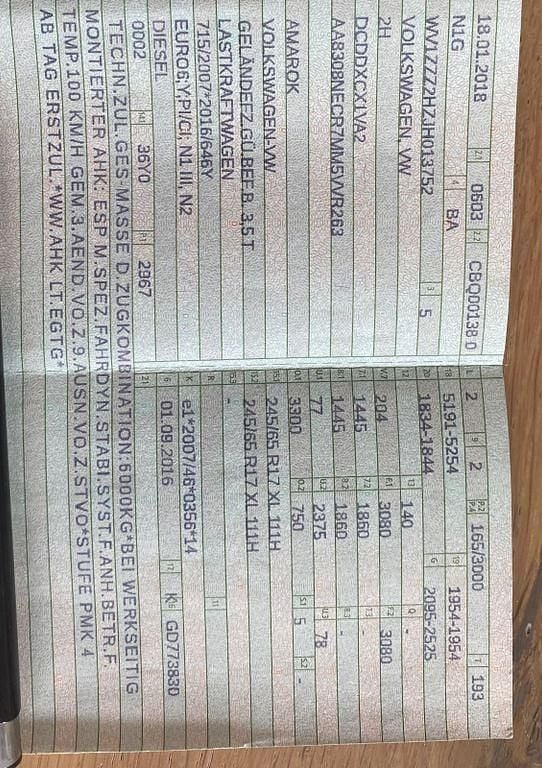 18.01.2018 2.1 0603 2.2 CBQ00138 0
N1G 4 BA
WV1ZZZ2HZJH013752 3 5
VOLKSWAGEN, VW
2H
DCDDXCX1VA2
AA8308NECR7MM5VVR263
AMAROK
VOLKSWAGEN-VW
GELÄNDEFZ.GÜ.BEF.B. 3,5 T
LASTKRAFTWAGEN
715/2007*2016/646Y
EURO6;Y;PI/CI; N1 III, N2
DIESEL
0002 14.1 36Y0 P.1 2967
L 2 9 2 P.2 P.4 165/3000 T 193
18 5191-5254 19 1954-1954
20 1834-1844 G 2095-2525
12 - 13 140 Q -
V.7 204 F.1 3080 F.2 3080
7.1 1445 7.2 1860 7.3 -
8.1 1445 8.2 1860 8.3 -
U.1 77 U.2 2375 U.3 78
O.1 3300 O.2 750 S.1 5 S.2 -
15.1 245/65 R17 XL 111H
15.2 245/65 R17 XL 111H
15.3 -
R 11
K e1*2007/46*0356*14
6 01.09.2016 17 K 16 GD773830
21
TECHN.ZUL.GES-MASSE D.ZUGKOMBINATION:6000KG*BEI WERKSEITIG
MONTIERTER AHK: ESP M.SPEZ.FAHRDYN.STABI.SYST.F.ANH.BETR.F.
TEMP.100 KM/H GEM.3.AEND.VO.Z.9.AUSN.VO.Z.STVO*STUFE PMK 4
AB TAG ERSTZUL.*WW.AHK LT.EGTG*